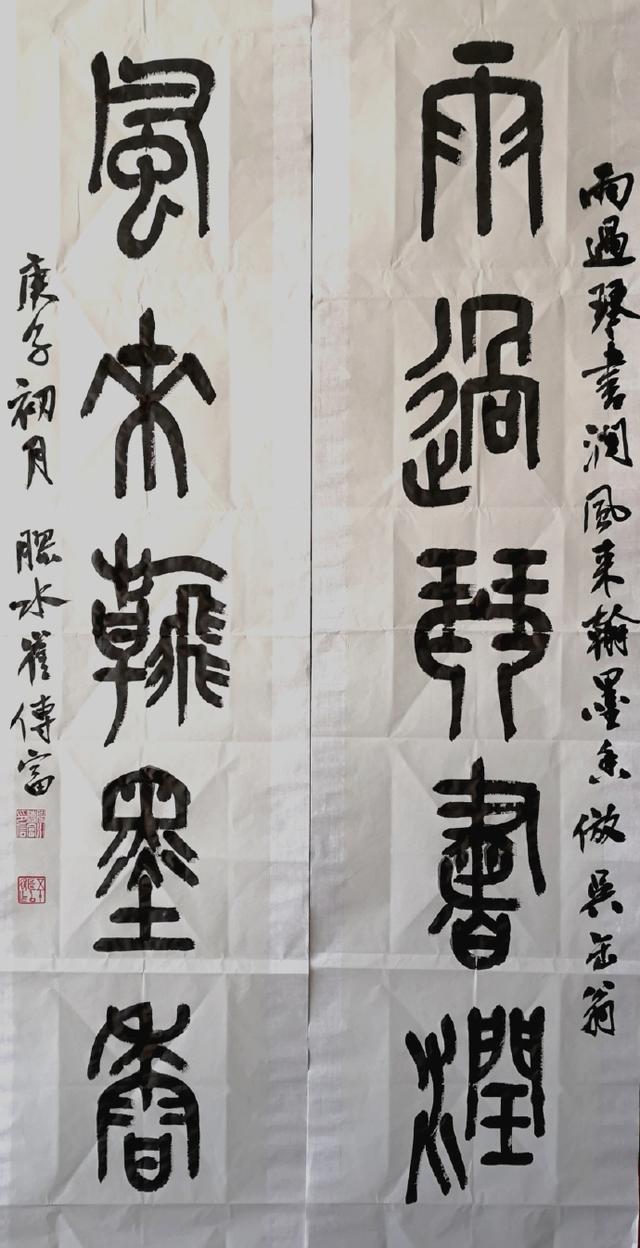 雨過琴書潤風來翰墨香倣吳缶翁
雨過琴書潤
風來翰墨香
庚子初月 膠水崔傳富